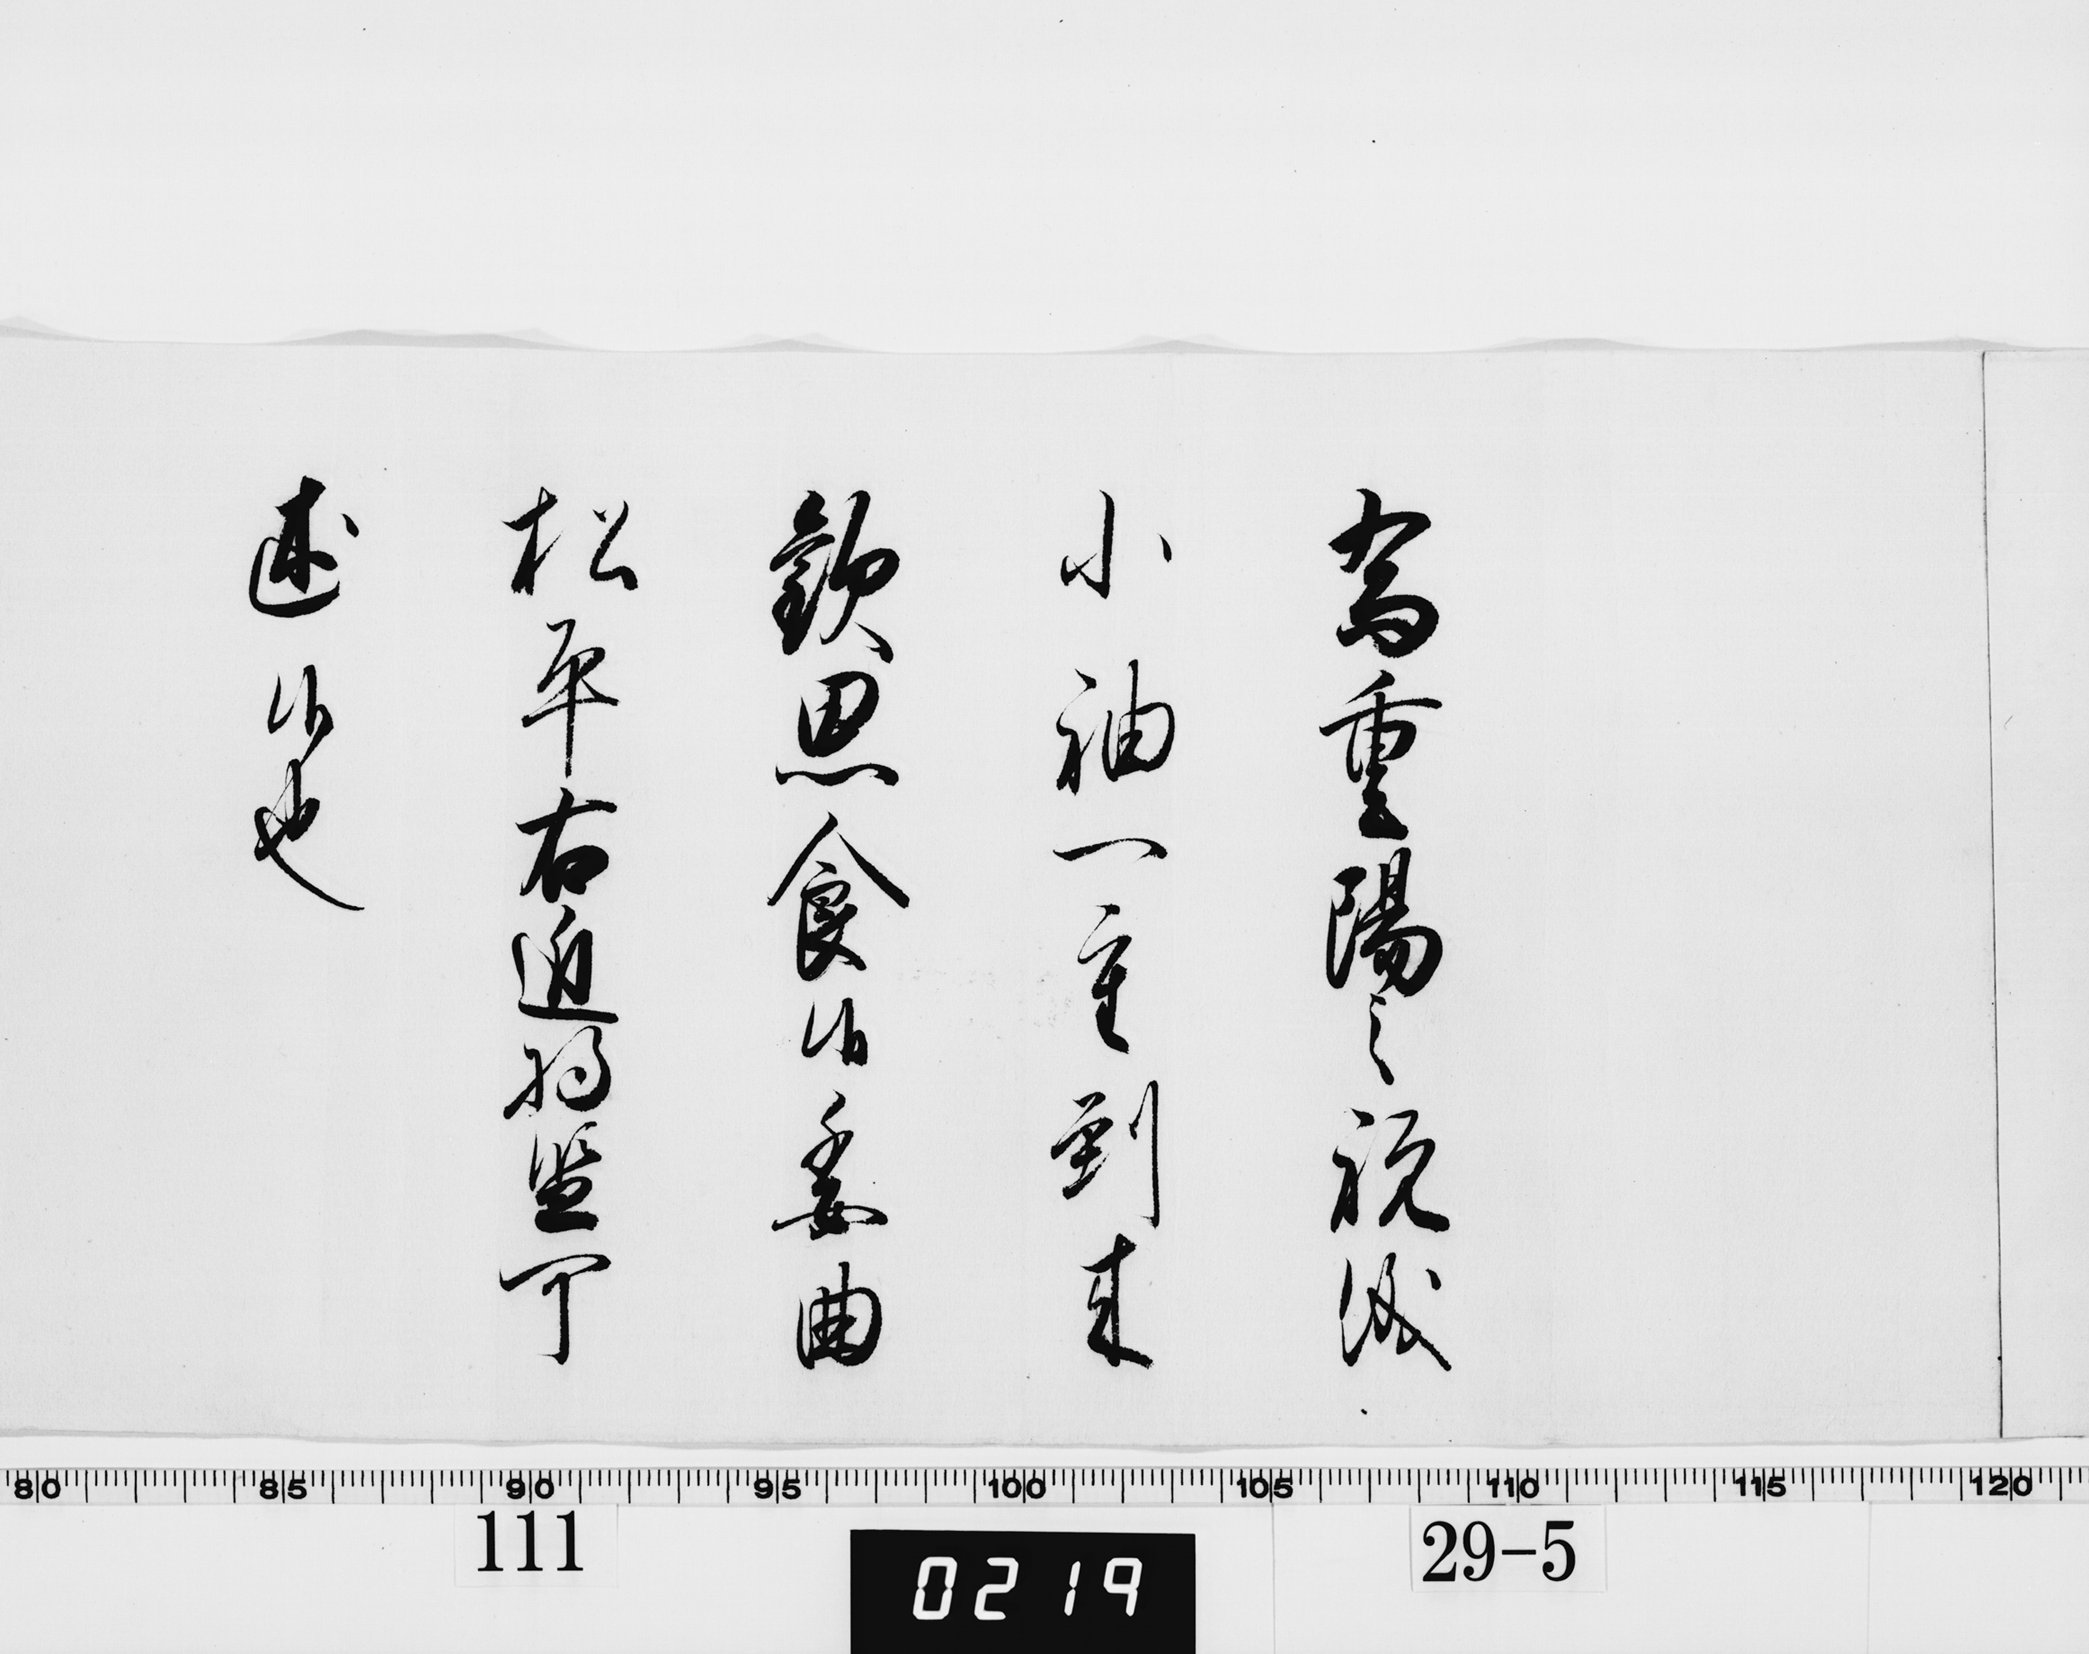 為重陽之祝儀
小袖一重到来
歓思食候委曲
松平右近将監可
述候也
80 85 90 95 100 105 110 115 120
111
0219
29-5